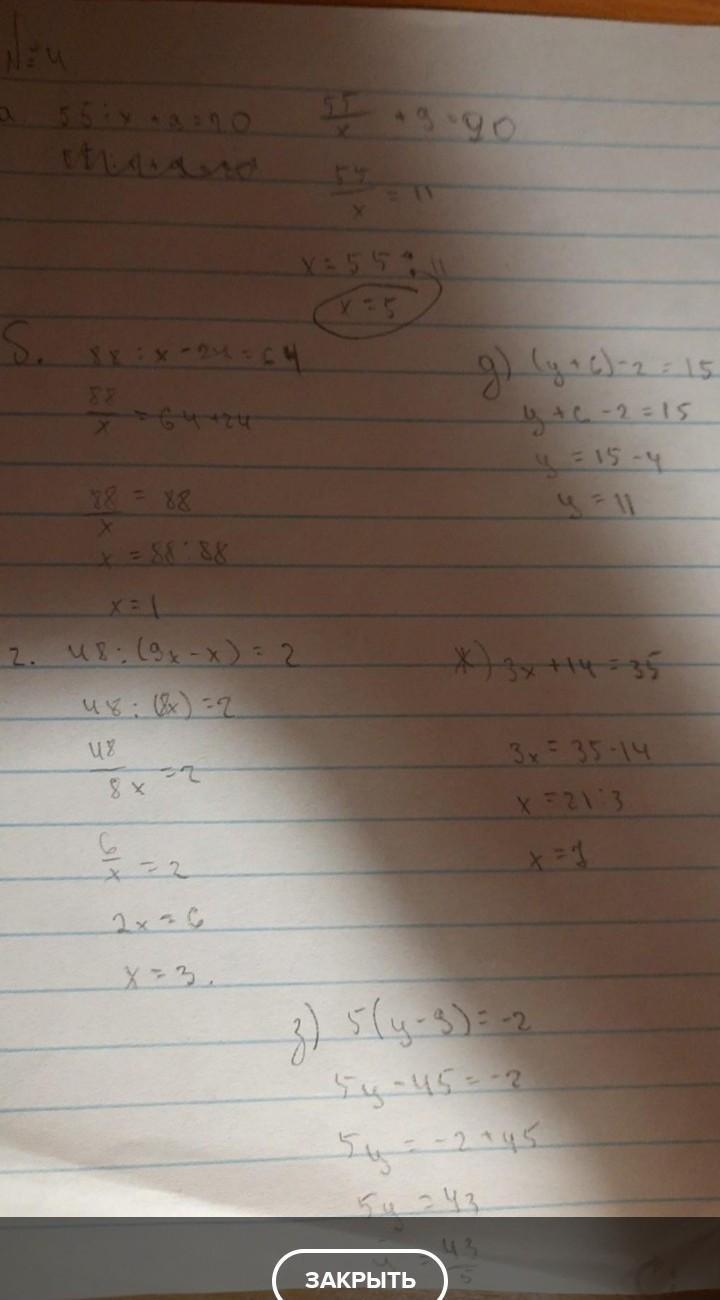 № 4
а 55 : x + 9 = 20
55/x + 9 = 90
55/x = 11
x = 55 : 11
x = 5
б. 88 : x - 24 = 64
88/x = 64 + 24
88/x = 88
x = 88 : 88
x = 1
д) (y + 6) - 2 = 15
y + 6 - 2 = 15
y = 15 - 4
y = 11
г. 48 : (9x - x) = 2
48 : (8x) = 2
48/8x = 2
6/x = 2
2x = 6
x = 3.
ж) 3x + 14 = 35
3x = 35 - 14
x = 21 : 3
x = 7
з) 5(y - 9) = -2
5y - 45 = -2
5y = -2 + 45
5y = 43
y = 43/5
ЗАКРЫТЬ